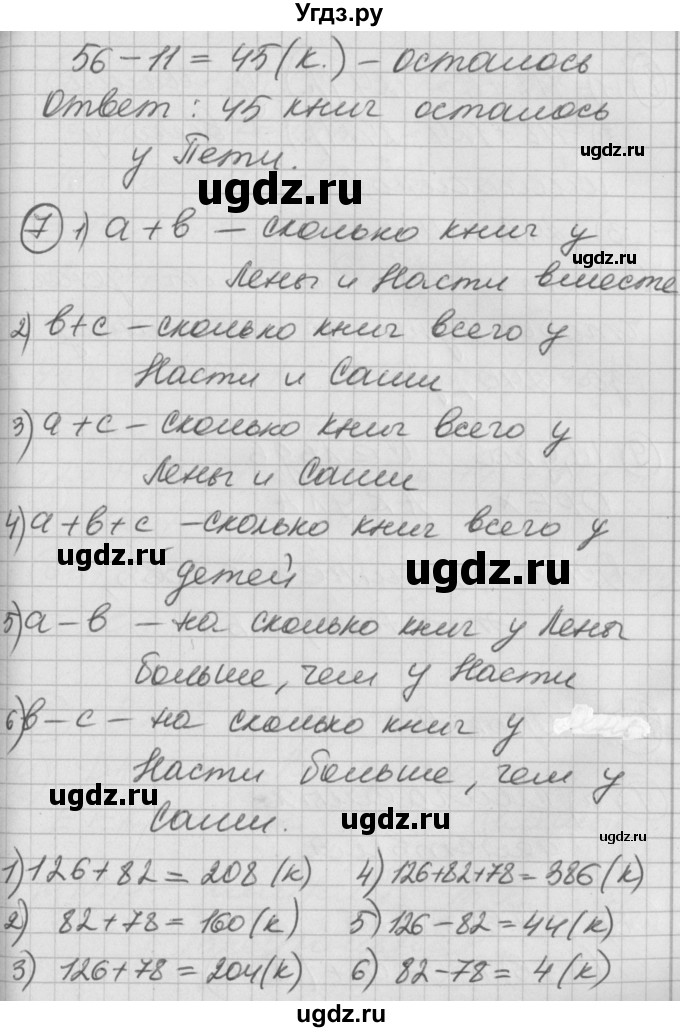 Угдз.ру
56 - 11 = 45 (к.) - осталось
Ответ: 45 книг осталось
ugdz.ru
у Пети.
ugdz.ru
7 1) а + в - сколько книг у
ugdz.ru
Лены и Насти вместе
2) в + с - сколько книг всего у
Насти и Саши
3) а + с - сколько книг всего у
Лены и Саши
4) а + в + с - сколько книг всего у
ugdz.ru
ugdz.ru
детей
5) а - в - на сколько книг у Лены
больше, чем у Насти
6) в - с - на сколько книг у
Насти больше, чем у
ugdz.ru
Саши.
ugdz.ru
1) 126 + 82 = 208 (к) 4) 126 + 82 + 78 = 386 (к)
2) 82 + 78 = 160 (к) 5) 126 - 82 = 44 (к)
3) 126 + 78 = 204 (к) 6) 82 - 78 = 4 (к)
ugdz.ru